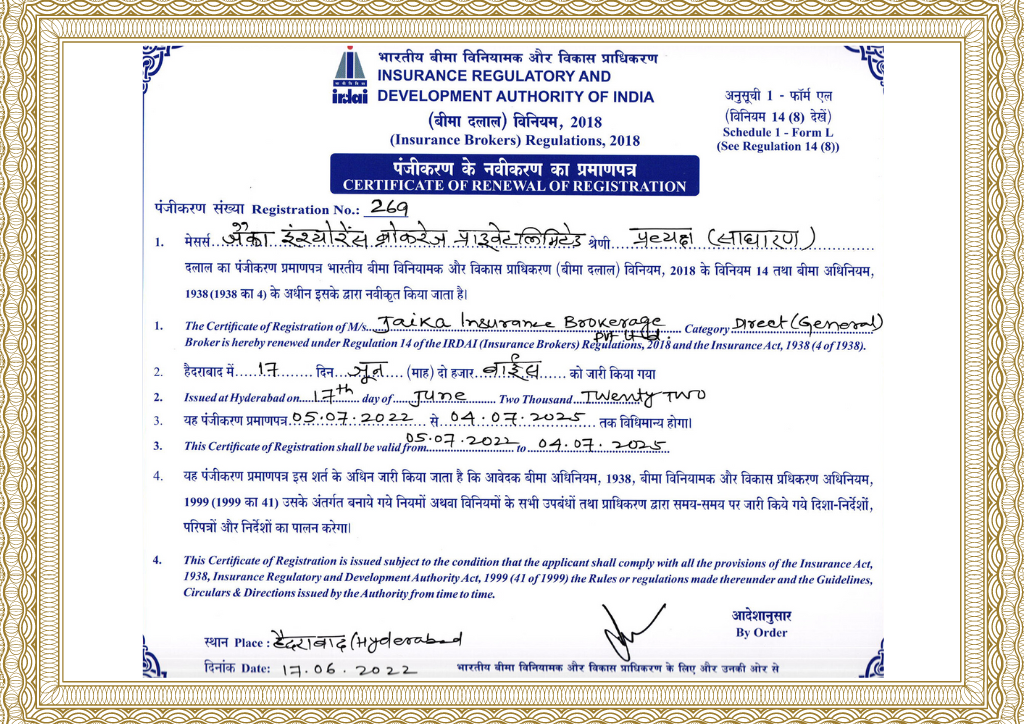 भारतीय बीमा विनियामक और विकास प्राधिकरण
INSURANCE REGULATORY AND
irdai DEVELOPMENT AUTHORITY OF INDIA
(बीमा दलाल) विनियम, 2018
(Insurance Brokers) Regulations, 2018
अनुसूची 1 - फॉर्म एल
(विनियम 14 (8) देखें)
Schedule 1 - Form L
(See Regulation 14 (8))
पंजीकरण के नवीकरण का प्रमाणपत्र
CERTIFICATE OF RENEWAL OF REGISTRATION
पंजीकरण संख्या Registration No.: 269
1. मेसर्स जैका इंश्योरेंस ब्रोकरेज प्राइवेट लिमिटेड श्रेणी प्रत्यक्ष (साधारण)
दलाल का पंजीकरण प्रमाणपत्र भारतीय बीमा विनियामक और विकास प्राधिकरण (बीमा दलाल) विनियम, 2018 के विनियम 14 तथा बीमा अधिनियम,
1938 (1938 का 4) के अधीन इसके द्वारा नवीकृत किया जाता है।
1. The Certificate of Registration of M/s. Jaika Insurance Brokerage Pvt. Ltd. Category Direct (General)
Broker is hereby renewed under Regulation 14 of the IRDAI (Insurance Brokers) Regulations, 2018 and the Insurance Act, 1938 (4 of 1938).
2. हैदराबाद में 17 दिन जून (माह) दो हजार बाईस को जारी किया गया
2. Issued at Hyderabad on 17th day of June Two Thousand Twenty Two
3. यह पंजीकरण प्रमाणपत्र 05.07.2022 से 04.07.2025 तक विधिमान्य होगा।
3. This Certificate of Registration shall be valid from 05.07.2022 to 04.07.2025
4. यह पंजीकरण प्रमाणपत्र इस शर्त के अधिन जारी किया जाता है कि आवेदक बीमा अधिनियम, 1938, बीमा विनियामक और विकास प्रधिकरण अधिनियम,
1999 (1999 का 41) उसके अंतर्गत बनाये गये नियमों अथवा विनियमों के सभी उपबंधों तथा प्राधिकरण द्वारा समय-समय पर जारी किये गये दिशा-निर्देशों,
परिपत्रों और निर्देशों का पालन करेगा।
4. This Certificate of Registration is issued subject to the condition that the applicant shall comply with all the provisions of the Insurance Act,
1938, Insurance Regulatory and Development Authority Act, 1999 (41 of 1999) the Rules or regulations made thereunder and the Guidelines,
Circulars & Directions issued by the Authority from time to time.
आदेशानुसार
By Order
स्थान Place : हैदराबाद (Hyderabad
दिनांक Date: 17.06.2022
भारतीय बीमा विनियामक और विकास प्राधिकरण के लिए और उनकी ओर से